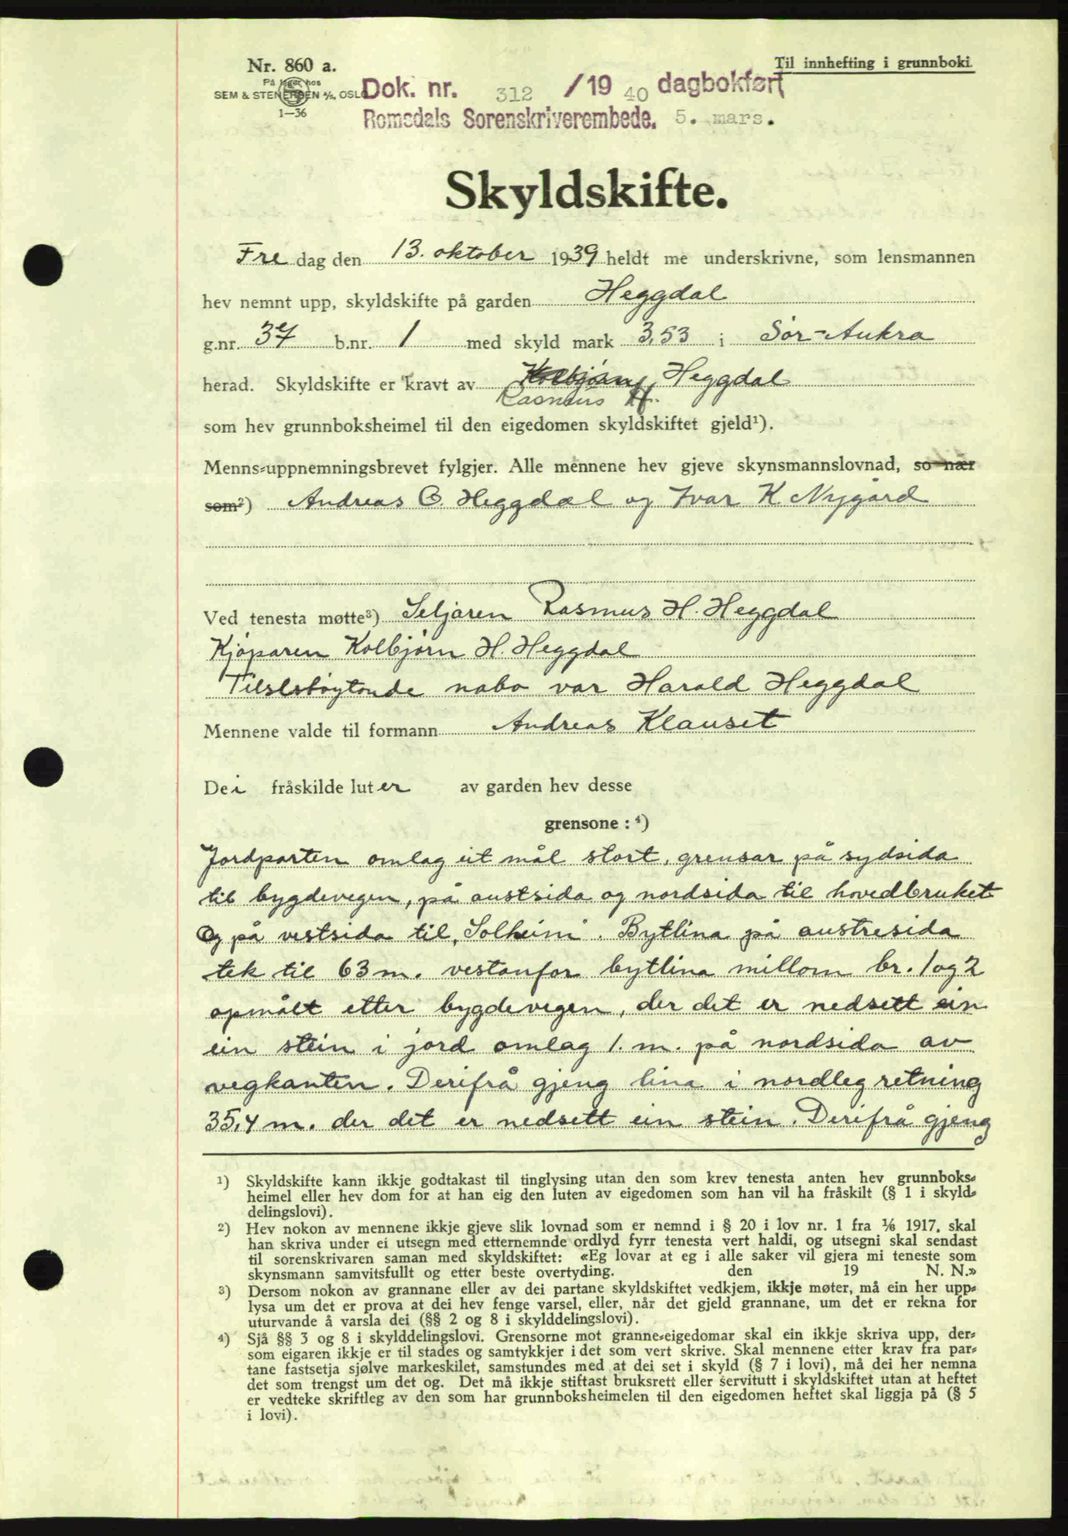 Nr. 860 a.
På lager hos
SEM & STENERSEN A/S, OSLO
1—36
Til innhefting i grunnboki.
Dok. nr. 312 /19 40 dagbokført
Romsdals Sorenskriverembede. 5. mars.
Skyldskifte.
Fre dag den 13. oktober 1939 heldt me underskrivne, som lensmannen
hev nemnt upp, skyldskifte på garden Heggdal
g.nr. 37 b.nr. 1 med skyld mark 3,53 i Sør-Aukra
herad. Skyldskifte er kravt av Kolbjørn H. Heggdal
Rasmus H.
som hev grunnboksheimel til den eigedomen skyldskiftet gjeld¹).
Menns-uppnemningsbrevet fylgjer. Alle mennene hev gjeve skynsmannslovnad, so nær
som²) Andreas O. Heggdal og Ivar K. Nygård
Ved tenesta møtte³) Seljaren Rasmus H. Heggdal
Kjøparen Kolbjørn H. Heggdal
Tilstøytande nabo var Harald Heggdal
Mennene valde til formann Andreas Klauset
Dei fråskilde luter av garden hev desse
grensone : ⁴)
Jordparten omlag eit mål stort, grensar på sydsida
til bygdevegen, på austsida og nordsida til hovedbruket
Og på vestsida til „Solheim". Bytlina på austresida
tek til 63 m. vestanfor bytlina millom br. 1 og 2
opmålt etter bygdevegen, der det er nedsett ein
ein stein i jord omlag 1. m. på nordsida av
vegkanten. Derifrå gjeng lina i nordleg retning
35,4 m. der det er nedsett ein stein. Derifrå gjeng
¹) Skyldskifte kann ikkje godtakast til tinglysing utan den som krev tenesta anten hev grunnboks-
heimel eller hev dom for at han eig den luten av eigedomen som han vil ha fråskilt (§ 1 i skyld-
delingslovi).
²) Hev nokon av mennene ikkje gjeve slik lovnad som er nemnd i § 20 i lov nr. 1 fra 1/6 1917, skal
han skriva under ei utsegn med etternemnde ordlyd fyrr tenesta vert haldi, og utsegni skal sendast
til sorenskrivaren saman med skyldskiftet: «Eg lovar at eg i alle saker vil gjera mi teneste som
skynsmann samvitsfullt og etter beste overtyding. den 19 N. N.»
³) Dersom nokon av grannane eller av dei partane skyldskiftet vedkjem, ikkje møter, må ein her upp-
lysa um det er prova at dei hev fenge varsel, eller, når det gjeld grannane, um det er rekna for
uturvande å varsla dei (§§ 2 og 8 i skylddelingslovi).
⁴) Sjå §§ 3 og 8 i skylddelingslovi. Grensorne mot granne-eigedomar skal ein ikkje skriva upp, der-
som eigaren ikkje er til stades og samtykkjer i det som vert skrive. Skal mennene etter krav fra par-
tane fastsetja sjølve markeskilet, samstundes med at dei set i skyld (§ 7 i lovi), må dei her nemna
det som trengst um det og. Det må ikkje stiftast bruksrett eller servitutt i skyldskiftet utan at heftet
er vedteke skriftleg av den som har grunnboksheimelen til den eigedomen heftet skal liggja på (§ 5
i lovi).